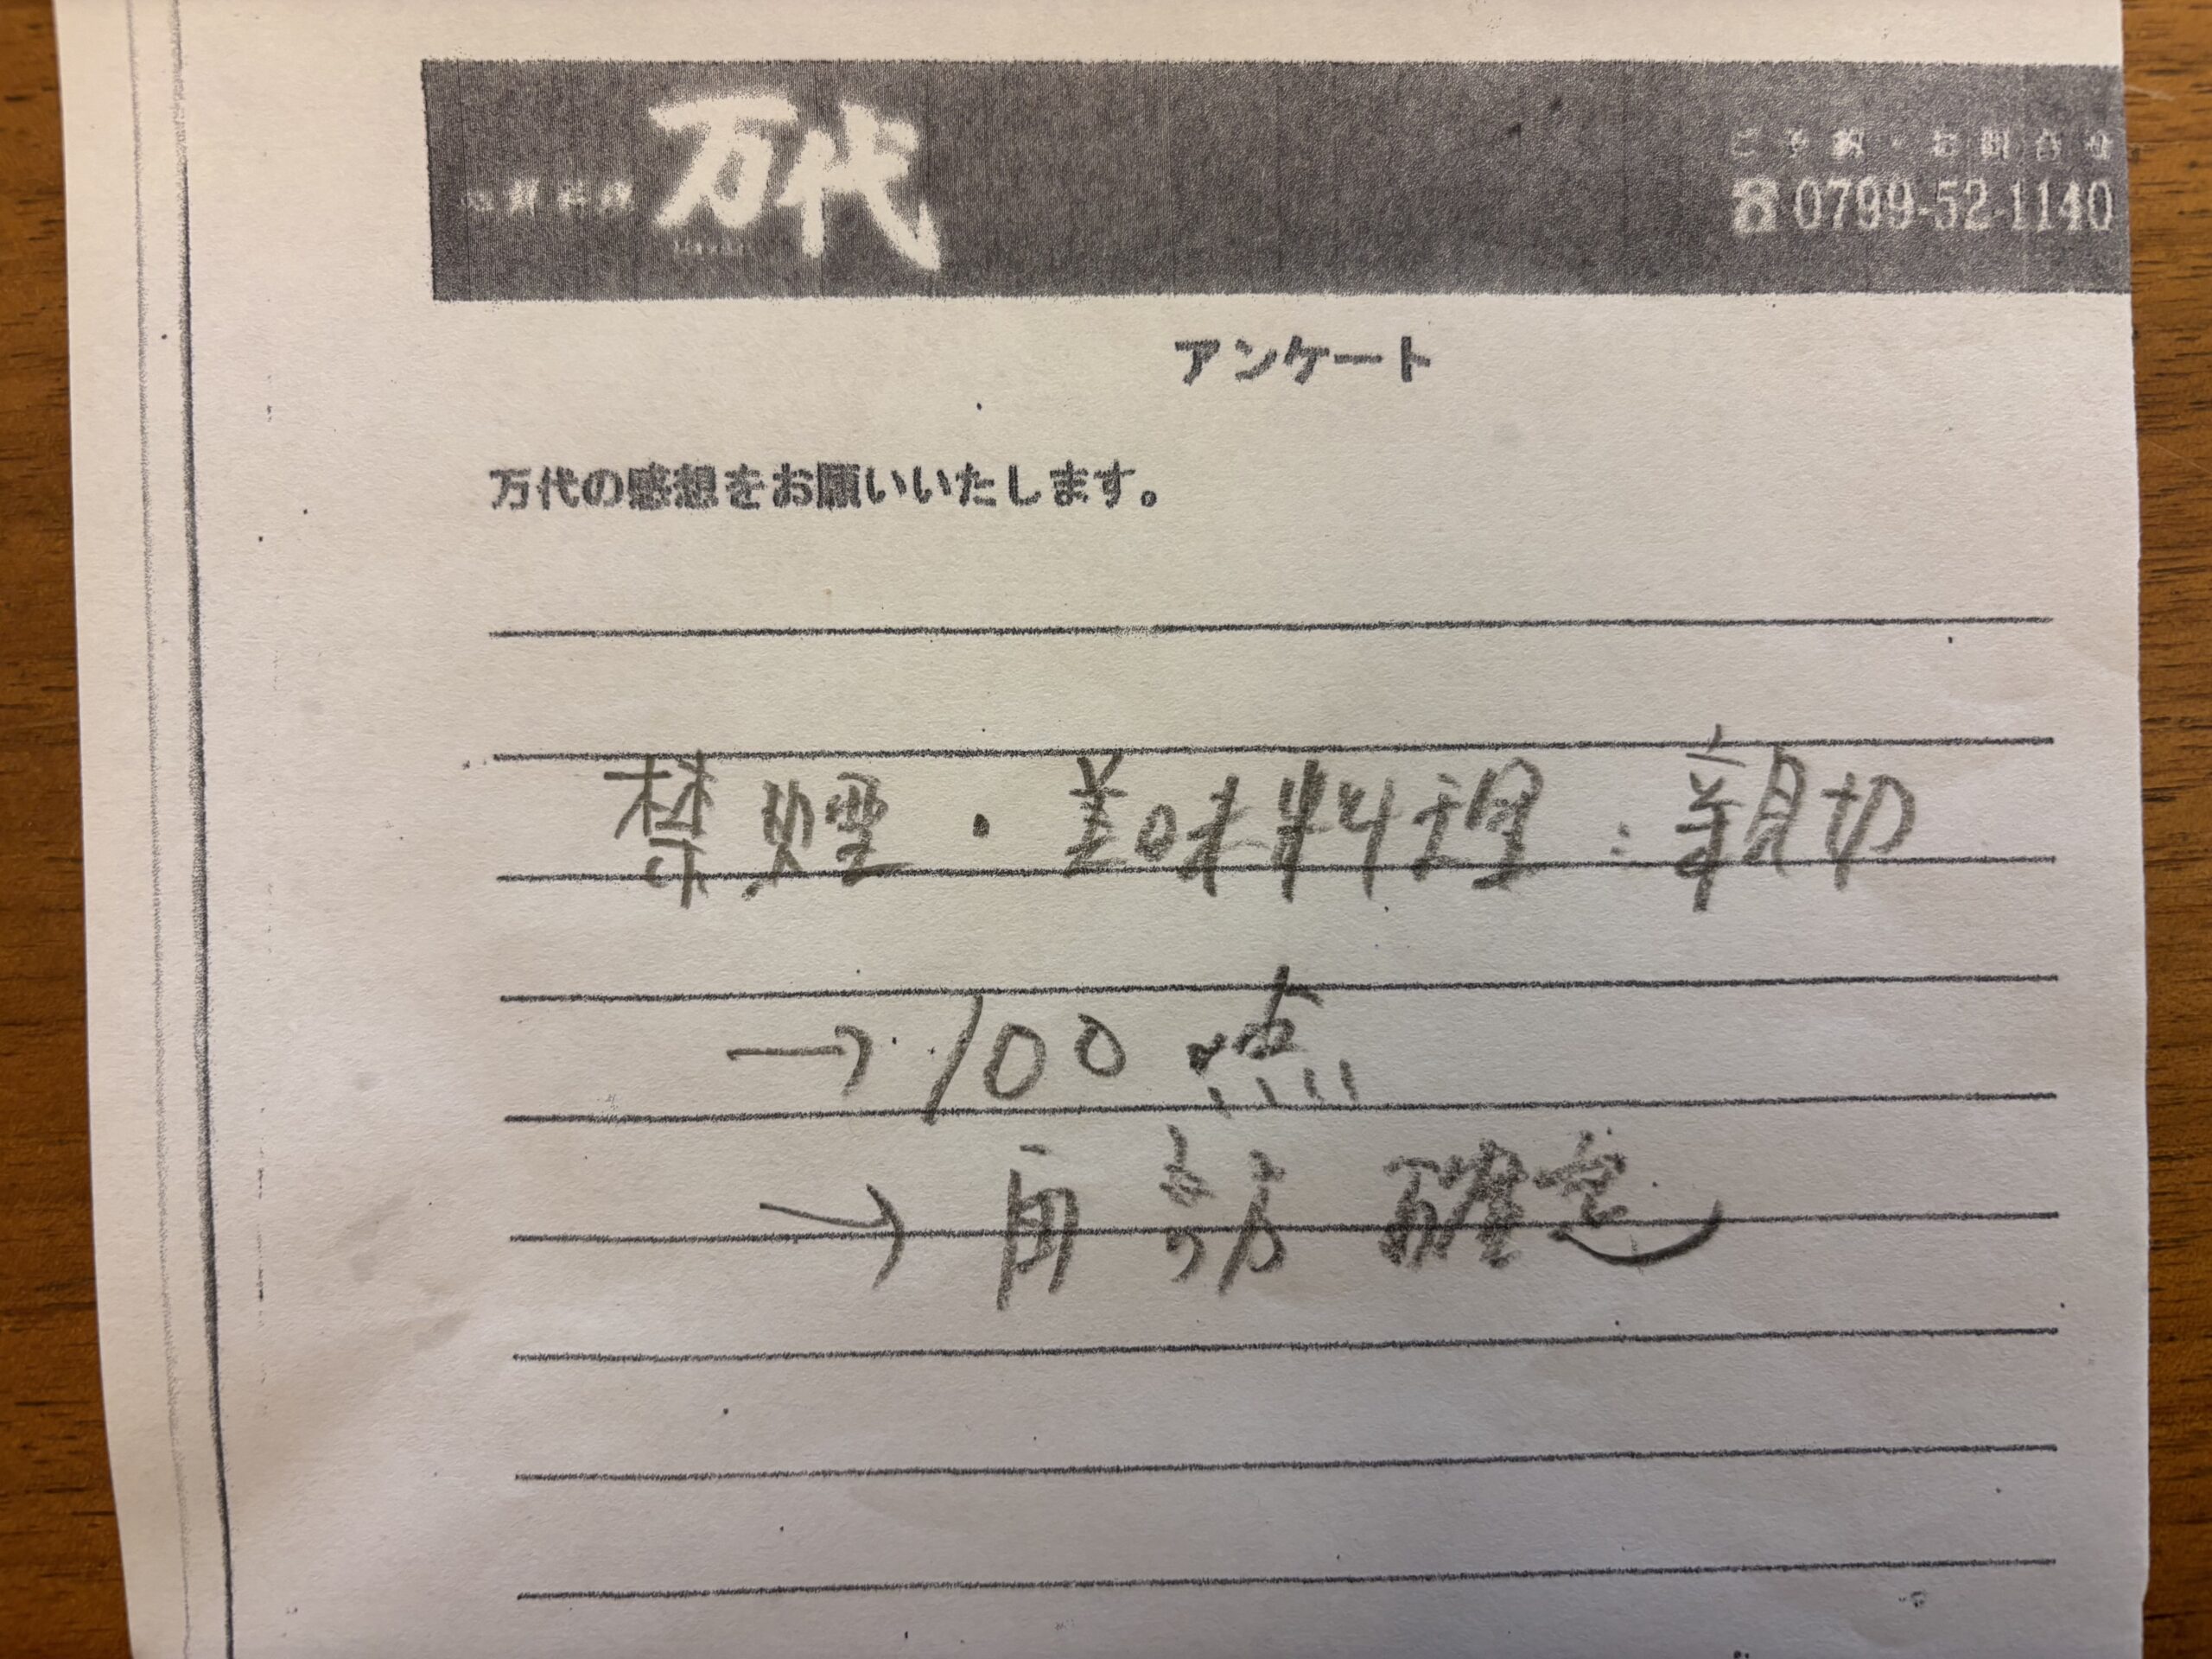 万代
ご予約・お問合せ
☎0799-52-1140
アンケート
万代の感想をお願いいたします。
禁煙・美味料理・親切
→100点
→再訪確定